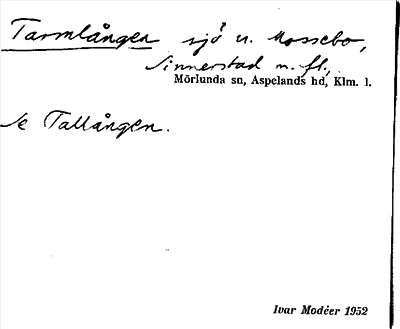 Tarmlången sjö u. Mossebo,
Sinnerstad m. fl.,
Mörlunda sn, Aspelands hd, Klm. l.
se Tallången.
Ivar Modéer 1952